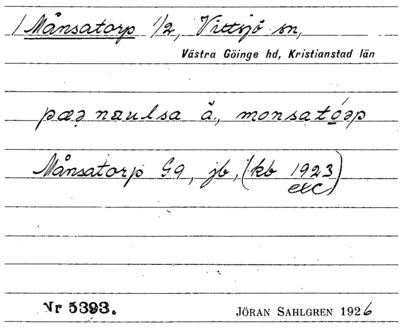 / Månsatorp 1/2, Vittsjö sn,
Västra Göinge hd, Kristianstad län
pæꝛ naulsa å., monsatóꝛp
Månsatorp Gg, jb, (kb 1923 exc)
Nr 5393.
JÖRAN SAHLGREN 1926